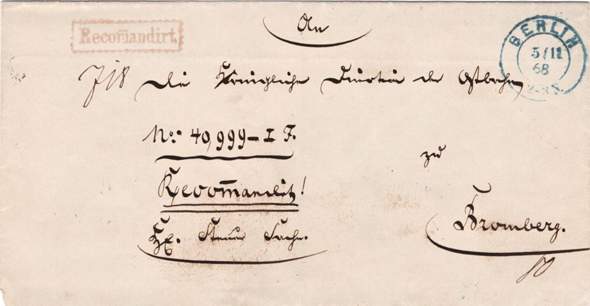 Recomandirt
An
BERLIN
5/11
68
718 die Königliche Direction der Ostbahn
No: 40,999-I F.
zu
Recommandirt!
Bromberg.
Steuer Sache.